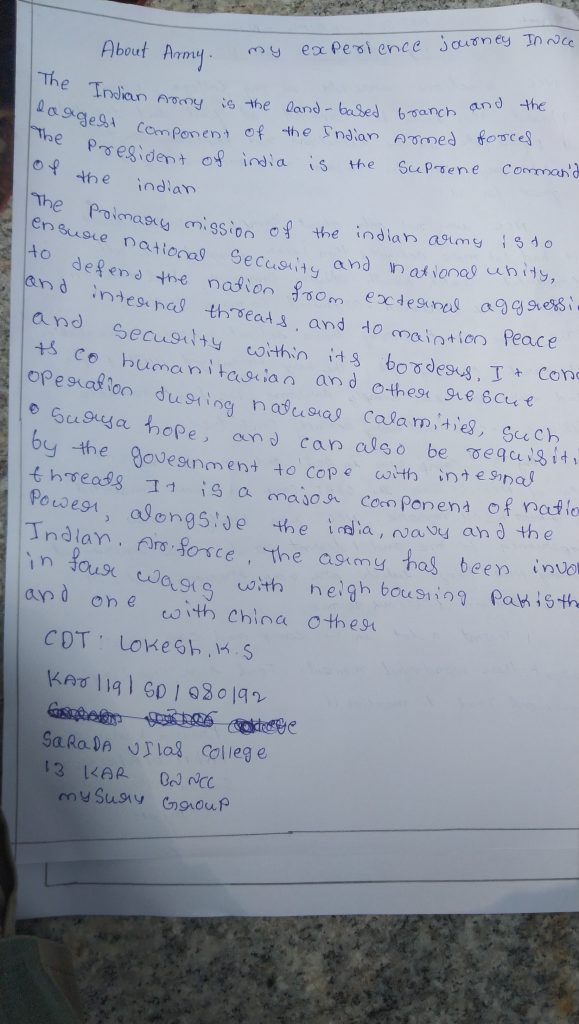 About Army. my experience journey In NCC
The Indian Army is the land-based branch and the
largest component of the Indian Armed forces
The President of india is the Suprene Command
of the indian
The Primary mission of the indian army is to
ensure national Security and national unity,
to defend the nation from external aggressi
and internal threats, and to maintion Peace
and Security within its borders, It con
ts co humanitarian and other rescue
operation during natural calamities, such
Surya hope, and can also be requisiti
by the government to cope with internal
threads It is a major component of natio
Power, alongside the india, navy and the
Indian. Air force, The army has been invol
in four wars with neighbouring Pakisth
and one with china other
CDT: LOKESh.K.S
KAR/19/SD/080192
SaRaDA VIlas college
13 KAR BN NCC
mysury Group